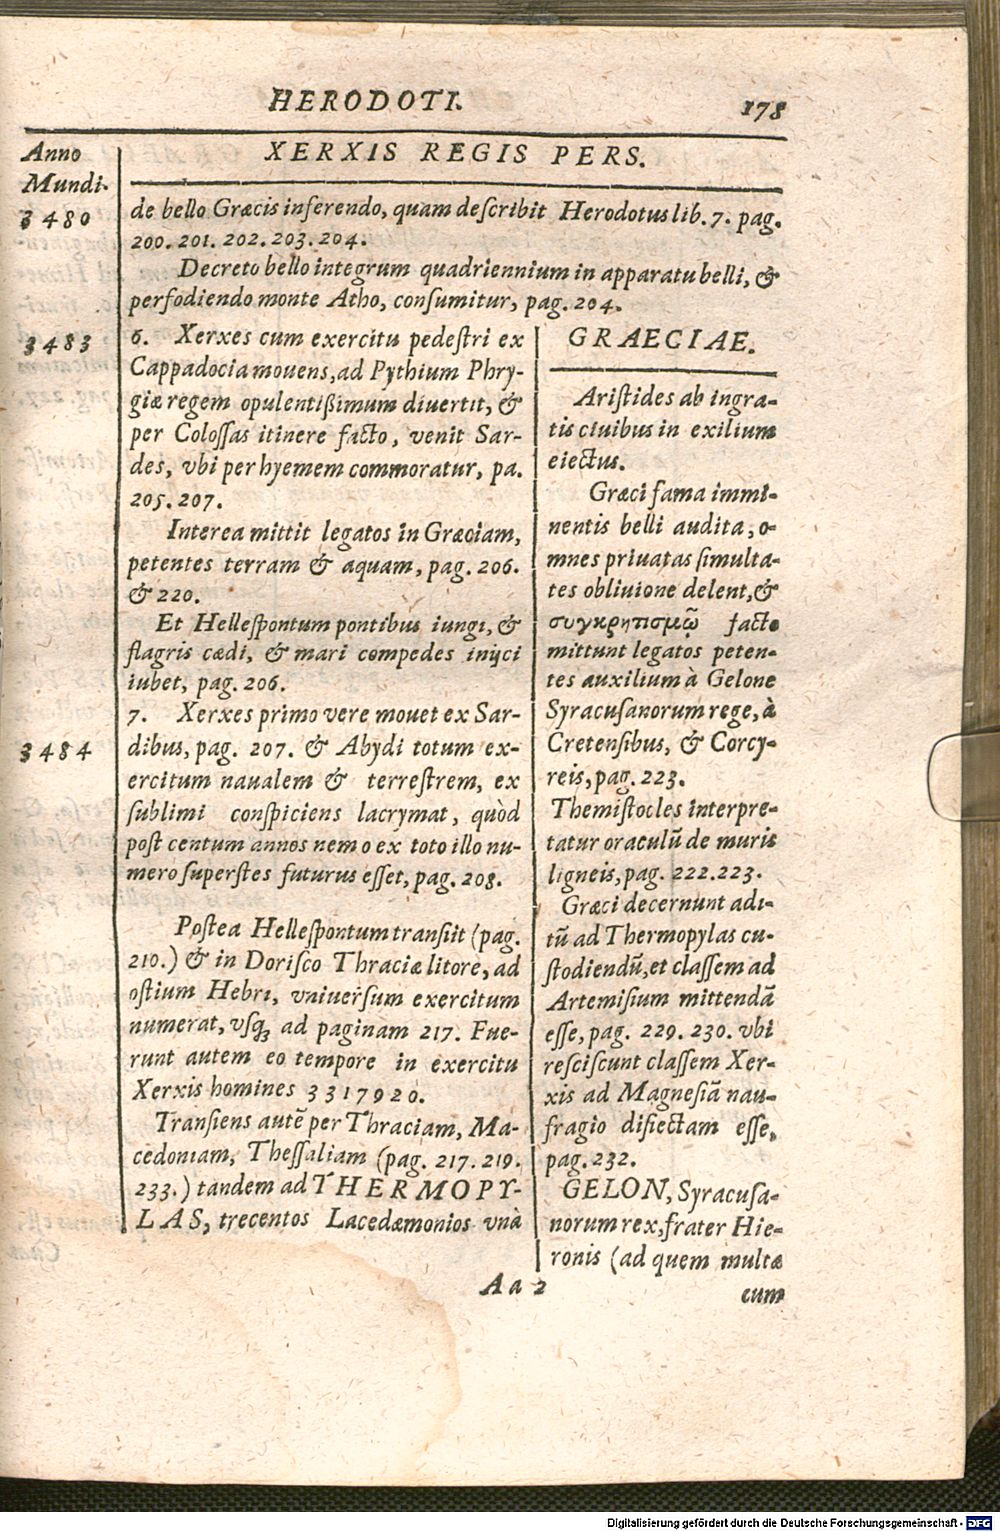 HERODOTI.
178
Anno
Mundi.
XERXIS REGIS PERS.
3480
de bello Græcis inferendo, quam describit Herodotus lib. 7. pag.
200. 201. 202. 203. 204.
Decreto bello integrum quadriennium in apparatu belli, &
perfodiendo monte Atho, consumitur, pag. 204.
3483
6. Xerxes cum exercitu pedestri ex
Cappadocia mouens, ad Pythium Phry-
giæ regem opulentißimum diuertit, &
per Colossas itinere facto, venit Sar-
des, vbi per hyemem commoratur, pa.
205. 207.
Interea mittit legatos in Græciam,
petentes terram & aquam, pag. 206.
& 220.
Et Hellespontum pontibus iungi, &
flagris cædi, & mari compedes inijci
iubet, pag. 206.
3484
7. Xerxes primo vere mouet ex Sar-
dibus, pag. 207. & Abydi totum ex-
ercitum naualem & terrestrem, ex
sublimi conspiciens lacrymat, quòd
post centum annos nemo ex toto illo nu-
mero superstes futurus esset, pag. 208.
Postea Hellespontum transiit (pag.
210.) & in Dorisco Thraciæ litore, ad
ostium Hebri, vniuersum exercitum
numerat, vsq; ad paginam 217. Fue-
runt autem eo tempore in exercitu
Xerxis homines 3317920.
Transiens autẽ per Thraciam, Ma-
cedoniam, Thessaliam (pag. 217. 219.
233.) tandem ad THERMOPY-
LAS, trecentos Lacedæmonios vnà
GRAECIAE.
Aristides ab ingra-
tis ciuibus in exilium
eiectus.
Græci fama immi-
nentis belli audita, o-
mnes priuatas simulta-
tes obliuione delent, &
συγκρητισμῷ facto
mittunt legatos peten-
tes auxilium à Gelone
Syracusanorum rege, à
Cretensibus, & Corcy-
reis, pag. 223.
Themistocles interpre-
tatur oraculũ de muris
ligneis, pag. 222. 223.
Græci decernunt adi-
tũ ad Thermopylas cu-
stodiendũ, et classem ad
Artemisium mittendã
esse, pag. 229. 230. vbi
resciscunt classem Xer-
xis ad Magnesiã nau-
fragio disiectam esse,
pag. 232.
GELON, Syracusa-
norum rex, frater Hie-
ronis (ad quem multæ
Aa 2
cum
Digitalisierung gefördert durch die Deutsche Forschungsgemeinschaft - DFG